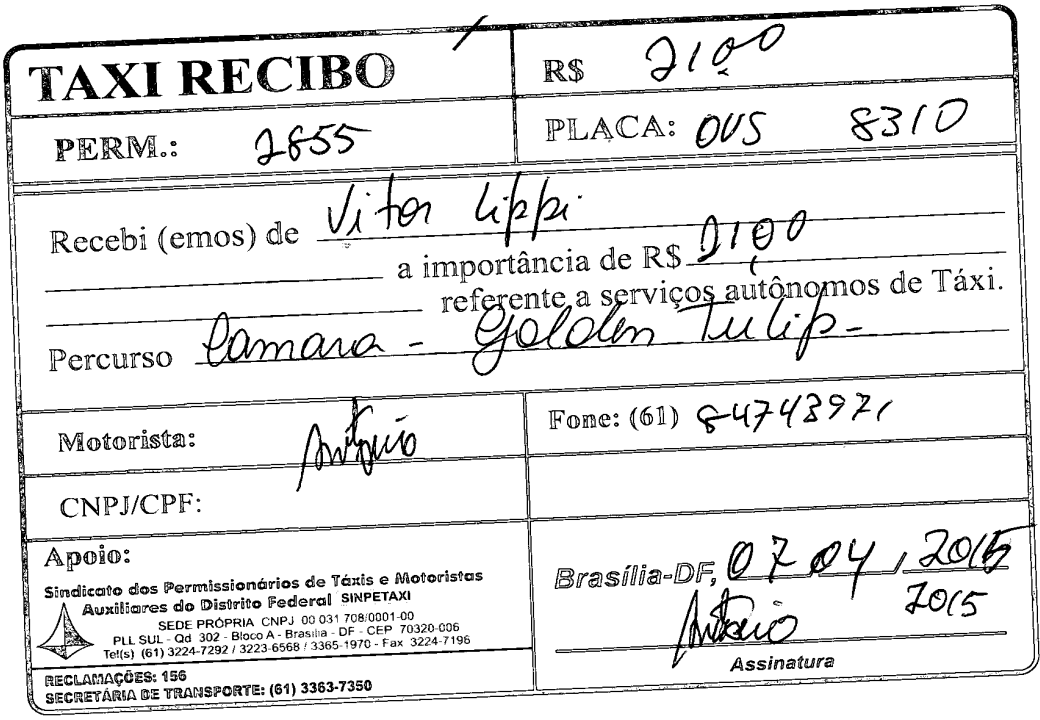 TAXI RECIBO
R$ 21,00
PERM.: 2855
PLACA: OVS 8310
Recebi (emos) de Vitor Lippi
a importância de R$ 21,00
referente a serviços autônomos de Táxi.
Percurso Camara - Golden Tulip -
Motorista: Antônio
Fone: (61) 84743971
CNPJ/CPF:
Apoio:
Sindicato dos Permissionários de Táxis e Motoristas
Auxiliares do Distrito Federal SINPETAXI
SEDE PRÓPRIA CNPJ 00 031 708/0001-00
PLL SUL - Qd 302 - Bloco A - Brasília - DF - CEP 70320-006
Tel(s) (61) 3224-7292 / 3223-6568 / 3365-1970 - Fax 3224-7196
RECLAMAÇÕES: 156
SECRETÁRIA DE TRANSPORTE: (61) 3363-7350
Brasília-DF, 07 04 / 2015
2015
Antônio
Assinatura